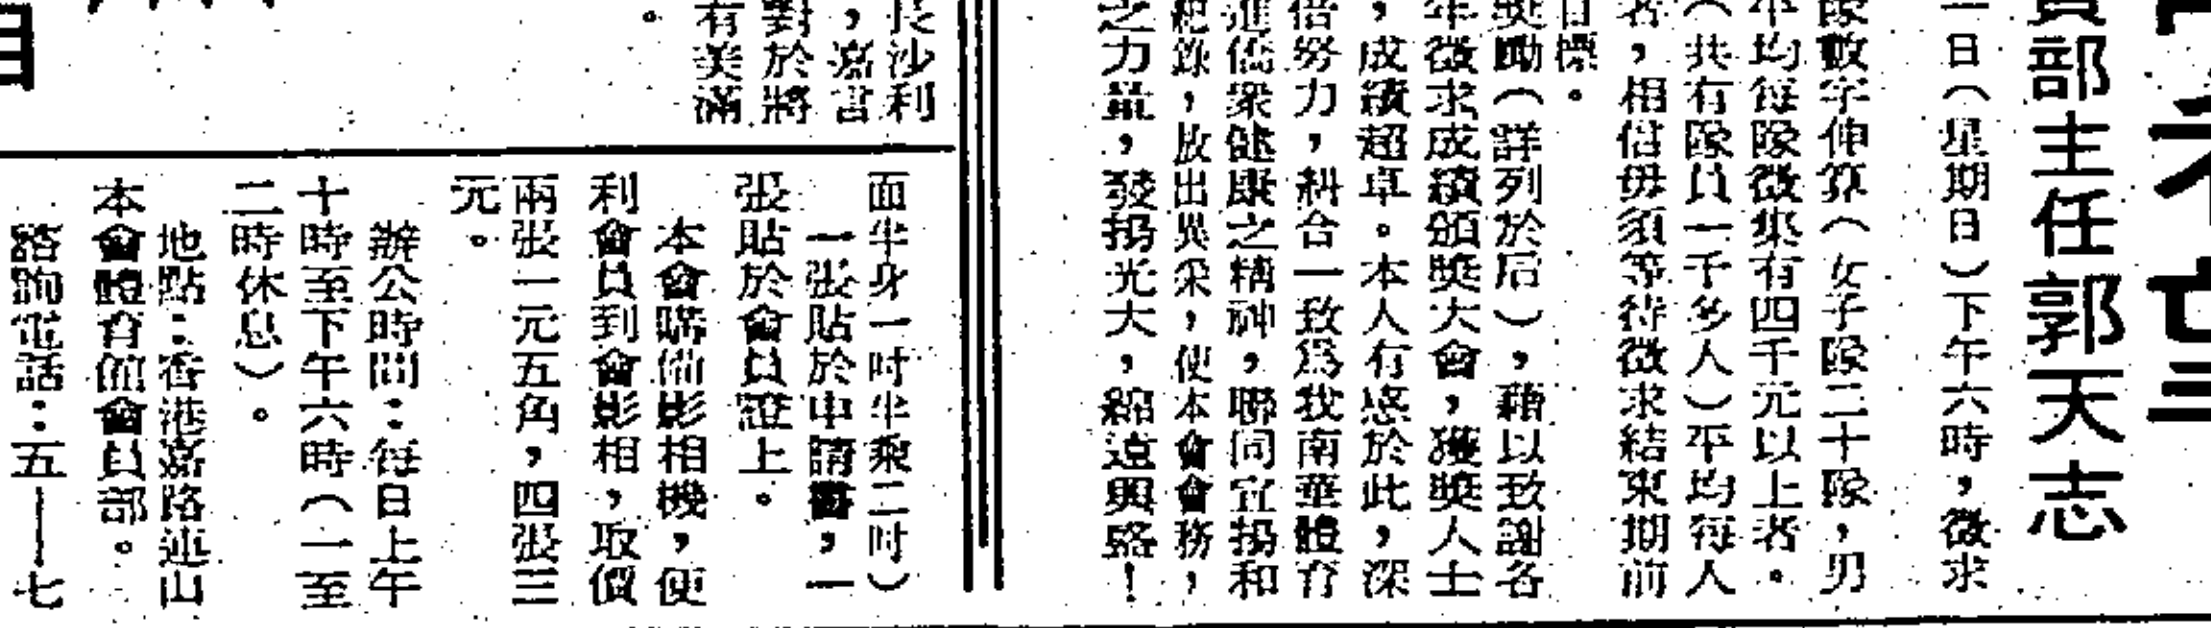 部主任郭天志
一日（星期日）下午六時，徵求
隊數字伸算（女子隊二十隊，男
平均每隊徵集有四千元以上者。
（共有隊員一千多人）平均每人
者，相信毋須等待徵求結束期前
目標。
獎勵（詳列於后），藉以致謝各
年徵求成績頒獎大會，獲獎人士
，成績超卓。本人有感於此，深
倍努力，糾合一致爲我南華體育
進僑衆健康之精神，聯同宣揚和
紀錄，放出異采，使本會會務，
之力量，發揚光大，綿遠興盛！
長沙利
，嘉言
對於將
有美滿
。
面半身一吋半乘二吋）
一張貼於申請書，一
張貼於會員證上。
本會購備影相機，便
利會員到會影相，取價
兩張一元五角，四張三
元。
辦公時間：每日上午
十時至下午六時（一至
二時休息）。
地點：香港嘉路連山
本會體育館會員部。
諮詢電話：五——七
相